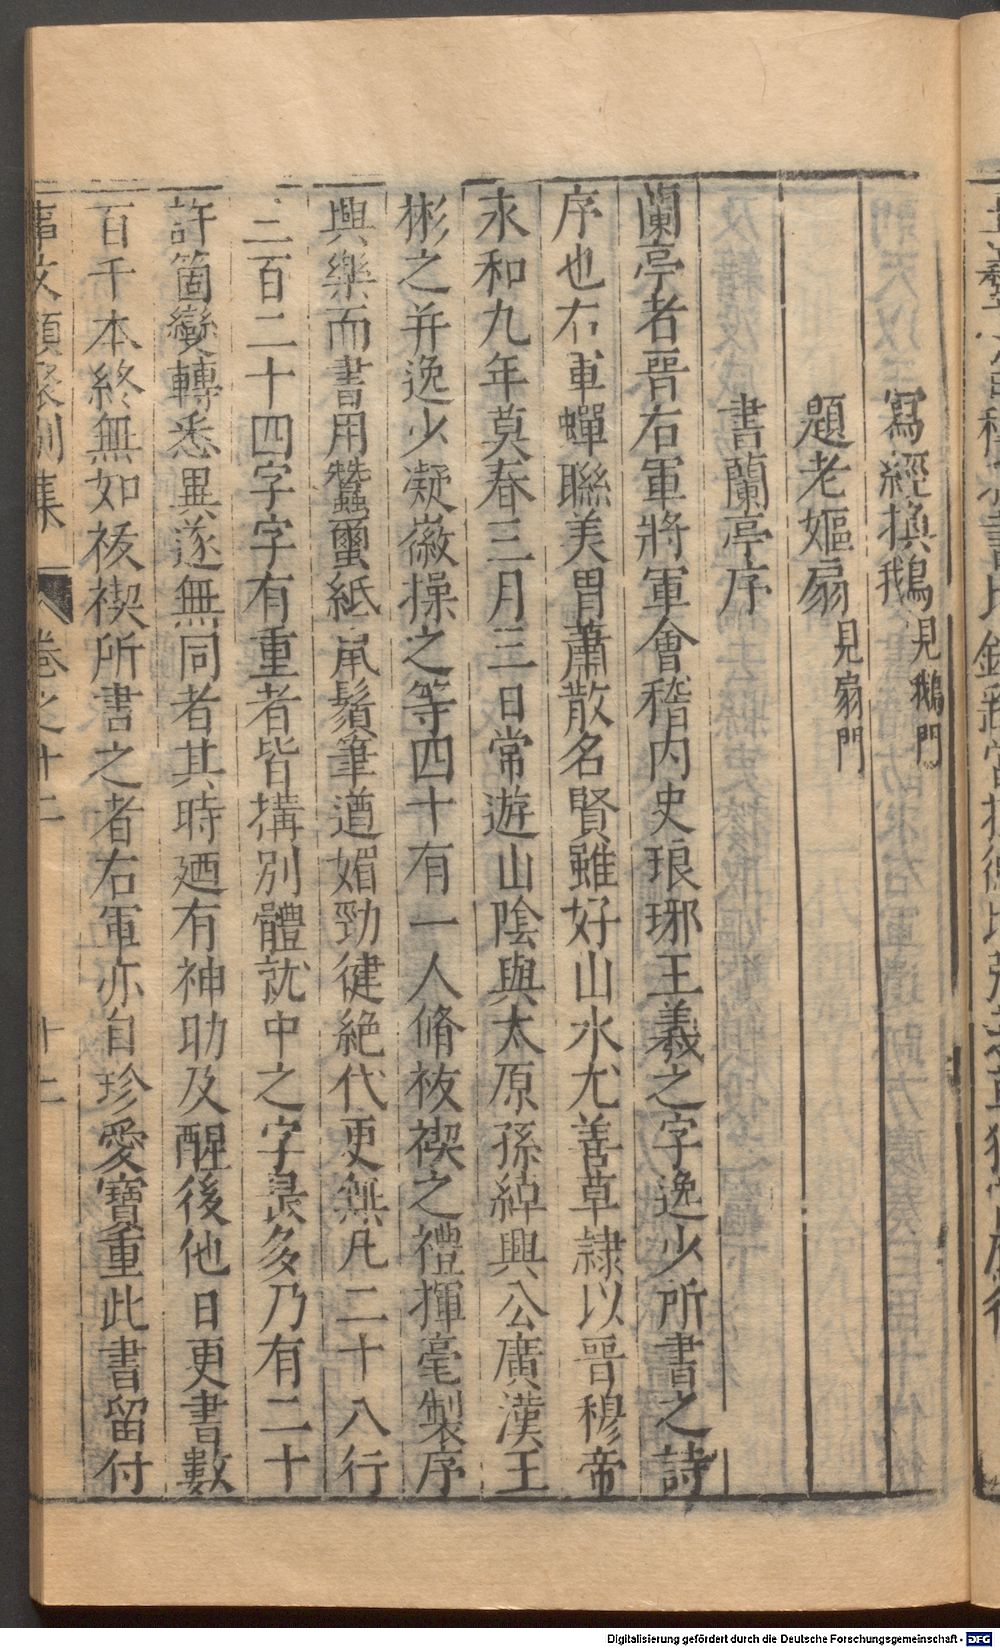 寫經換鵝見鵝門
題老嫗扇見扇門
書蘭亭序
蘭亭者晉右軍將軍會稽内史琅琊王羲之字逸少所書之詩
序也右軍蟬聯美胄蕭散名賢雖好山水尤善草隷以晉穆帝
永和九年莫春三月三日常遊山陰與太原孫綽興公廣漢王
彬之并逸少凝徽操之等四十有一人脩祓禊之禮揮毫製序
興樂而書用蠶蠒紙鼠鬚筆遒媚勁健絶代更無凡二十八行
三百二十四字字有重者皆搆別體就中之字最多乃有二十
許箇變轉悉異遂無同者其時廼有神助及醒後他日更書數
百千本終無如祓禊所書之者右軍亦自珍愛寶重此書留付
事文類聚別集 卷之十二 十二
Digitalisierung gefördert durch die Deutsche Forschungsgemeinschaft - DFG